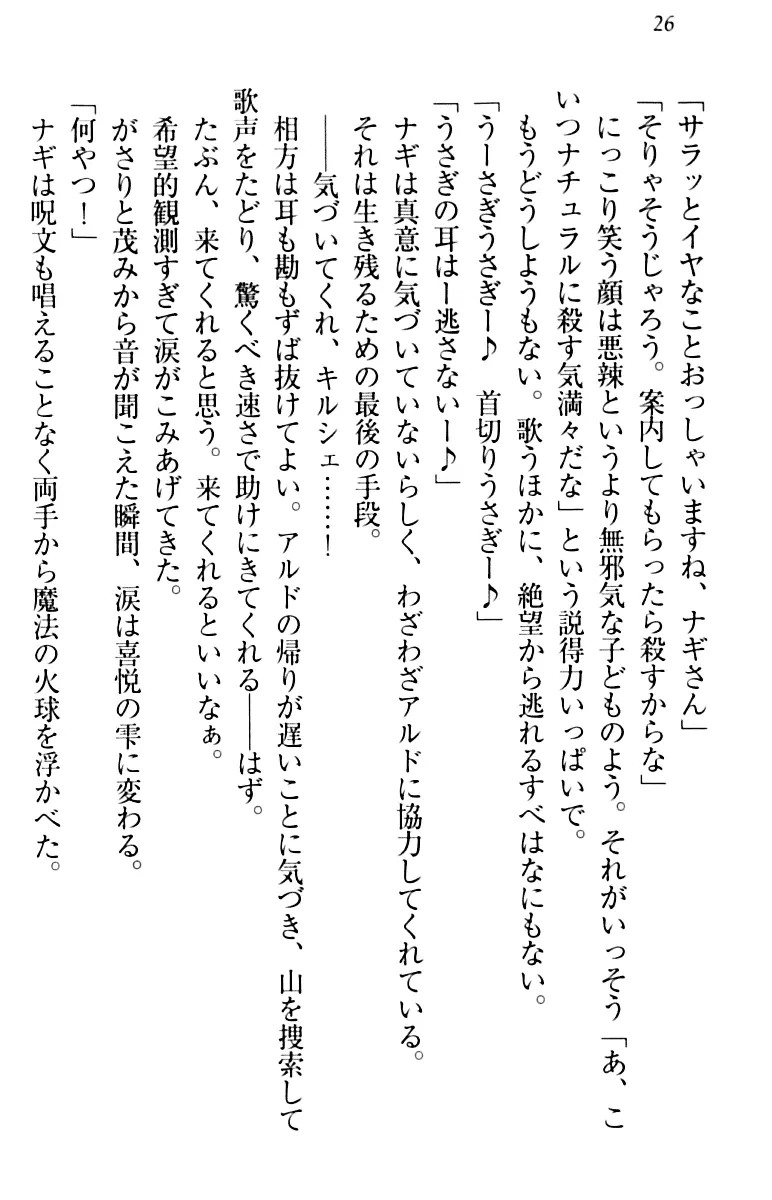 26
「サラッとイヤなことおっしゃいますね、ナギさん」
「そりゃそうじゃろう。案内してもらったら殺すからな」
にっこり笑う顔は悪辣というより無邪気な子どものよう。それがいっそう「あ、こ
いつナチュラルに殺す気満々だな」という説得力いっぱいで。
もうどうしようもない。歌うほかに、絶望から逃れるすべはなにもない。
「うーさぎうさぎー♪　首切りうさぎー♪」
「うさぎの耳はー逃さないー♪」
ナギは真意に気づいていないらしく、わざわざアルドに協力してくれている。
それは生き残るための最後の手段。
――気づいてくれ、キルシェ……！
相方は耳も勘もずば抜けてよい。アルドの帰りが遅いことに気づき、山を捜索して
歌声をたどり、驚くべき速さで助けにきてくれる――はず。
たぶん、来てくれると思う。来てくれるといいなぁ。
希望的観測すぎて涙がこみあげてきた。
がさりと茂みから音が聞こえた瞬間、涙は喜悦の雫に変わる。
「何やつ！」
ナギは呪文も唱えることなく両手から魔法の火球を浮かべた。